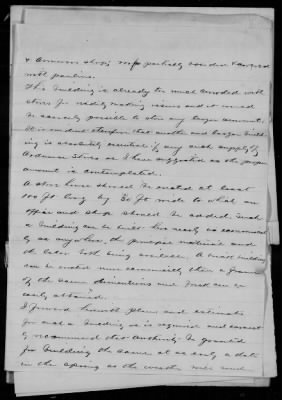 & Armorers shop, roof partially boarded & covered
with paulins.
This building is already too much crowded with
stores for readily making issues and it would
be scarcely possible to store any larger amount.
It is evident therefore that another and larger build
ing is absolutely essential if any such supply of
Ordnance Stores as I have suggested as the proper
amount is contemplated.
A store house should be erected at least
100 ft long by 30 ft wide to which an
office and shops should be added. Such
a building can be built here nearly as economical
ly as anywhere, the principal material and
the labor both being available. A building
can be erected more economically than a frame
of the same dimensions and could can be
easily obtained.
I forward herewith plans and estimate
for such a building as is required and earnest
ly recommend that authority be granted
for building the same at as early a date
in the spring as the weather will